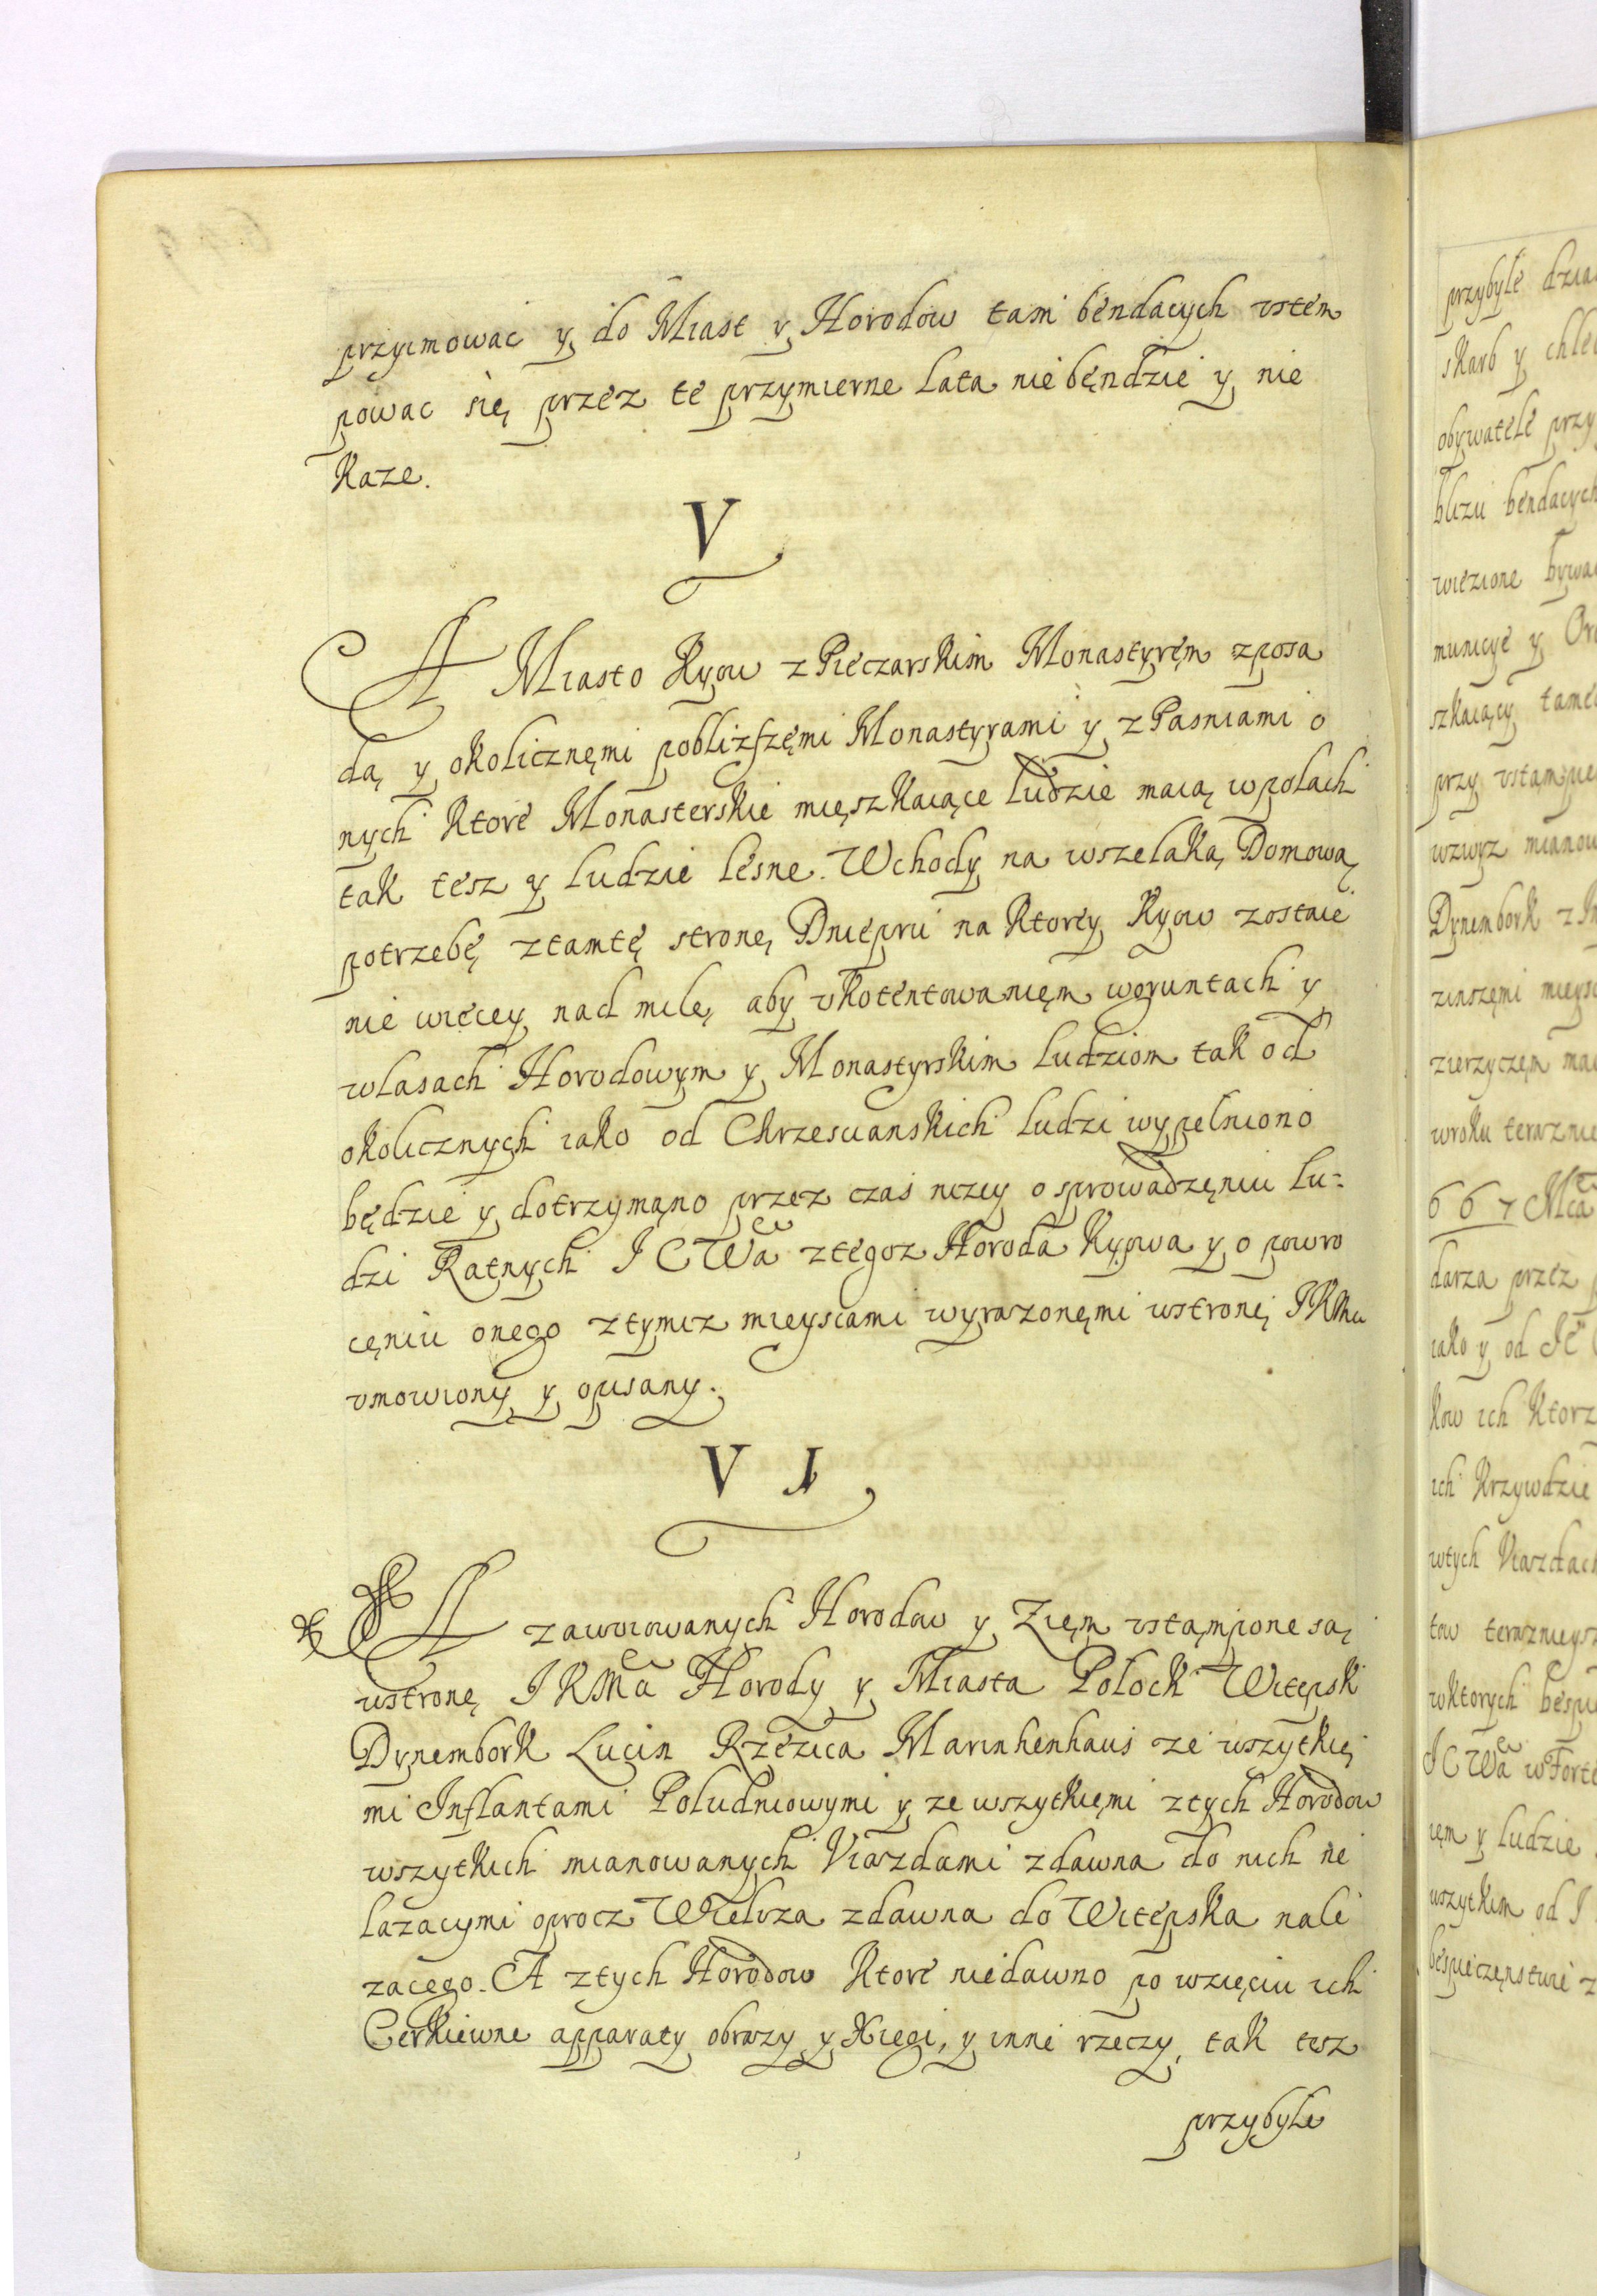 przyimować y do Miast y Horodow tam bendących vstem
pować się przez te przymierne Lata nie bęndzie y nie
Kaze.
V
A Miasto Kyow z Pieczarskim Monastyręm zposa
dą y okolicznęmi pobliższęmi Monastyrami y z Pasniami o
nych Ktore Monasterskie mięszkaiące ludzie maią w polach
tak tesz y ludzie lesne. Wchody na wszelaką Domową
potrzebę z tamtę stronę Dniepru na Ktorey Kyow zostaie
nie więcey nad milę aby vkotentowanięm wgruntach y
wlasach Horodowym y Monastyrskim ludziom tak od
okolicznych iako od Chrzescianskich ludzi wypelniono
będzie y dotrzymąno przez czas nizey o sprowadzęniu lu=
dzi Ratnych J C Wa ztegoz Horoda Kyowa y o powro
cęniu onego ztymiz mieyscami wyrazonęmi wstronę JKMci
vmowiony y opisany.
VI
A zawoiowanych Horodow y Zięm vstąmpione są
wstronę JKMci Horody y Miasta Polock Witepsk
Dynembork Lucin Rzezica Marinhenhaus ze wszytkię
mi Inflantami Poludniowymi y ze wszytkięmi ztych Horodow
wszytkich mianowanych Viazdami zdawna do nich ne
lazacymi oprocz Wieliza zdawna do Witepska nali
zacego. A ztych Horodow Ktore niedawno po wzięciu ich
Cerkiewne apparaty obrazy y Xiegi, y inne rzeczy, tak tesz
przybyle
przybyle
skarb y
obywatele
blizu bendacych
wiezione
municye y
szkaiący
przy
wzwyz
Dynembork
667
darza przez
iako y od
kow ich
ich Krzywdzie
w Ktorych
J C Wa w
y ludzie
wszytkim od